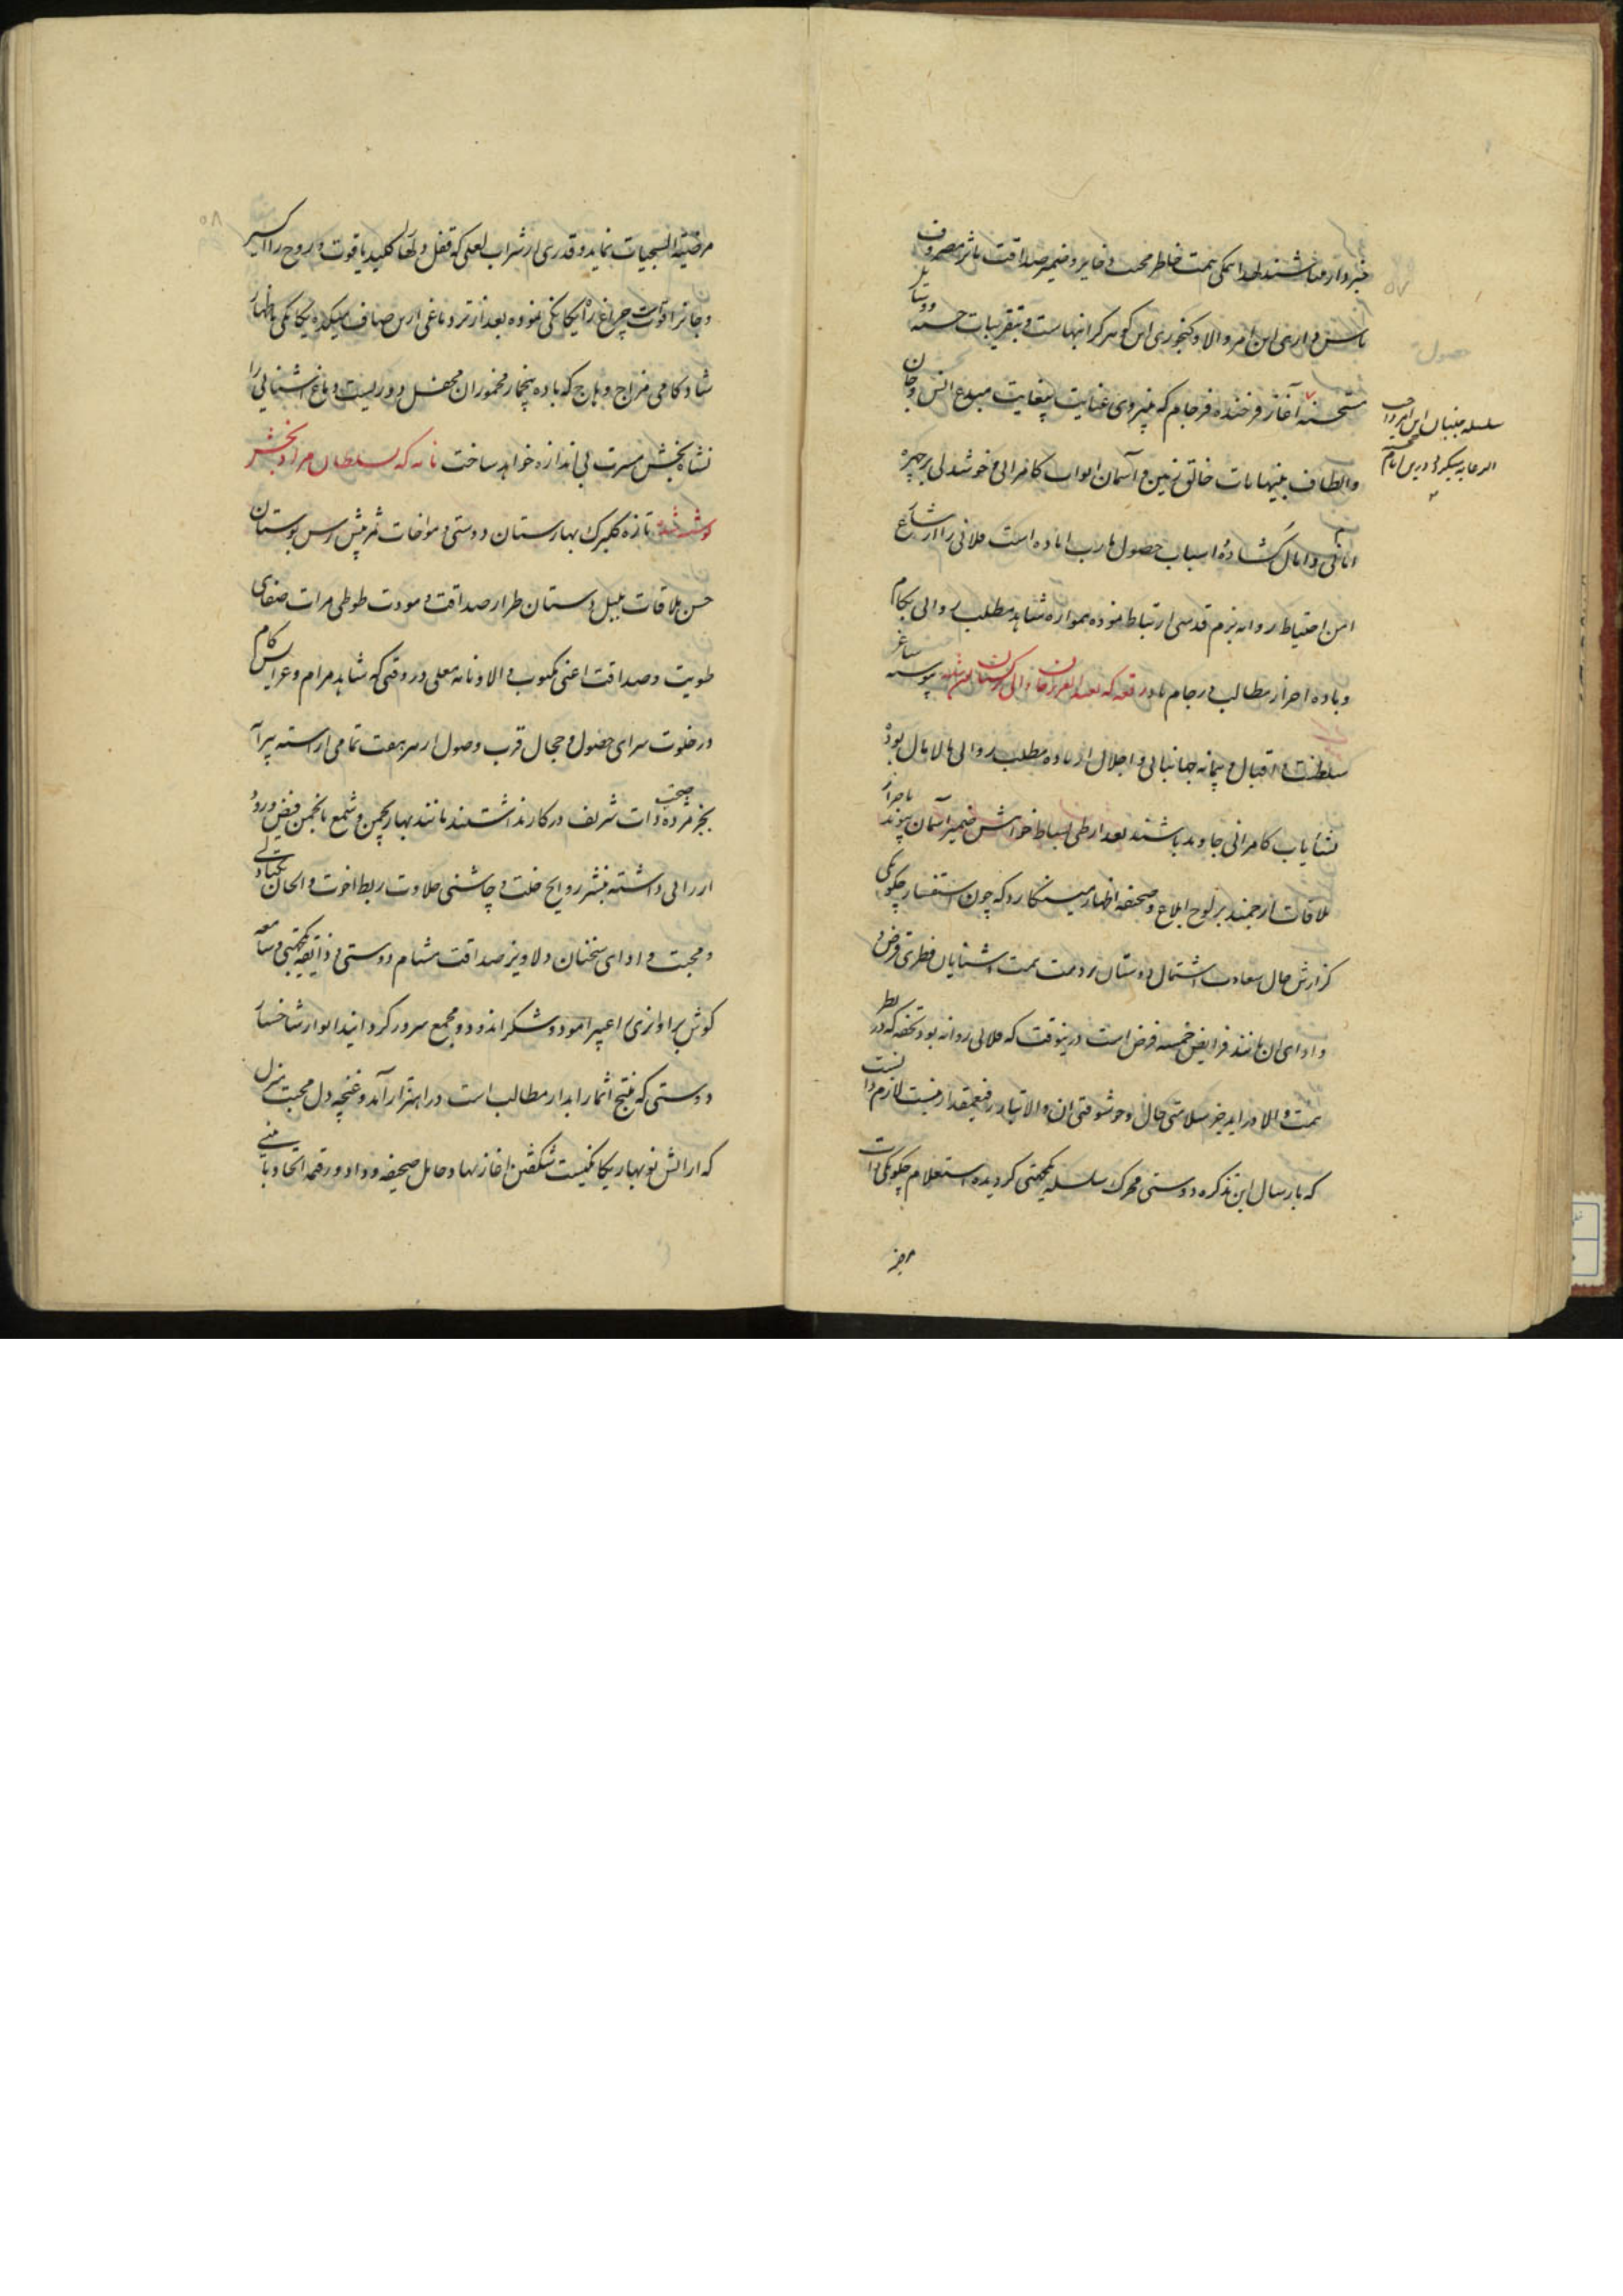 خبردار میباشند لهذا همگی همت خاطر محبت ذخایر و ضمیر صداقت تاثر مصروف
پاس داری این امر والا و کنجوری این گوهر گرانبهاست و بتقریبات حسنه و وسایل
مستحسنه آغاز فرخنده فرجام که بنیروی عنایت بیغایت مبدع انس و جان
سلسله جنبان این امر واجب الرعایه میگردد درین ایام
والطاف بینهایات خالق زمین و آسمان ابواب کامرانی و خوشدلی بر چهره
امانی و امال گشاده و اسباب حصول مارب اماده است فلانی را از شارع
امن احتیاط روانه بزم قدسی ارتباط نموده همواره شاهد مطلب روائی بکام
و باده احراز مطالب در جام باد رقعه که بعبدالعزیز خان والی ترکستان پیوسته ساغر
سلطنت و اقبال و پیمانه جهانبانی و اجلال از باده مطلب روائی مالامال بوده
نشأیاب کامرانی جاوید باشند بعد از طی بساط خواهش ضمیر آسمان پیوند باحراز
ملاقات ارجمند بر لوح ابلاغ و صحیفه اظهار مینگارد که چون استفسار چگونگی
گزارش حال سعادت اشتمال دوستان بر ذمت همت اشنایان فطرتی قرض
و ادای ان مانند فرایض خمسه فرض است درینوقت که فلانی روانه بود تحفه که در نظر
همت والا در اید بجز سلامتی حال و خوشوقتی ان والاتبار رفیعمقدار نیست لازم دانست
که بارسال این تذکره دوستی محرک سلسله یکجهتی گردیده استعلام چگونگی ذات
مرضیه
مرضیة السجیات نماید و قدری از شراب لعلی که قفل دلها را کلید یاقوت و روح را اکسیر
و جانرا قوت چراغ راه یکانگی نموده بعد از تر دماغی ازین صهاف میکده یکانگی باظهار
شادکامی مزاج وهاج که باده بیخمار مخموران محفل دوریست دماغ اشنایی را
نشاه بخش مسرت بی اندازه خواهد ساخت نامه که بسلطان مراد بخش
نوشته شد تازه گلبرگ بهارستان دوستی و مواخات ثمر پیش رس بوستان
حسن ملاقات بلبل دستان طراز صداقت و مودت طوطی مرات صفای
طویت و صداقت اعنی مکتوب والا و نامه معلی در وقتی که شاهد مرام و عرایس کام
در خلوت سرای حصول و حجال قرب وصول از هر هفت تمامی اراسته پیرا
بجز مژده صحت ذات شریف در کار نداشتند مانند بهار بچمن و شمع بانجمن فیض ورود
ارزانی داشته بنشر روایح خلت و چاشنی حلاوت ربط اخوت و الحان یکتادلی
و محبت و ادای سخنان دلاویز صداقت مشام دوستی و ذایقه یکجهتی و سامعه
گوش براوازی را عبیر امود و شکر اندود و مجمع سرور گردانید ازهار شاخسار
دوستی که منتج اثمار ابدار مطالب است در اهتزاز آمد و غنچه دل محبت منزل
که ارایش نوبهار یکانگیست شکفتن اغاز نهاد و حامل صحیفه وداد و رقمه اتحاد